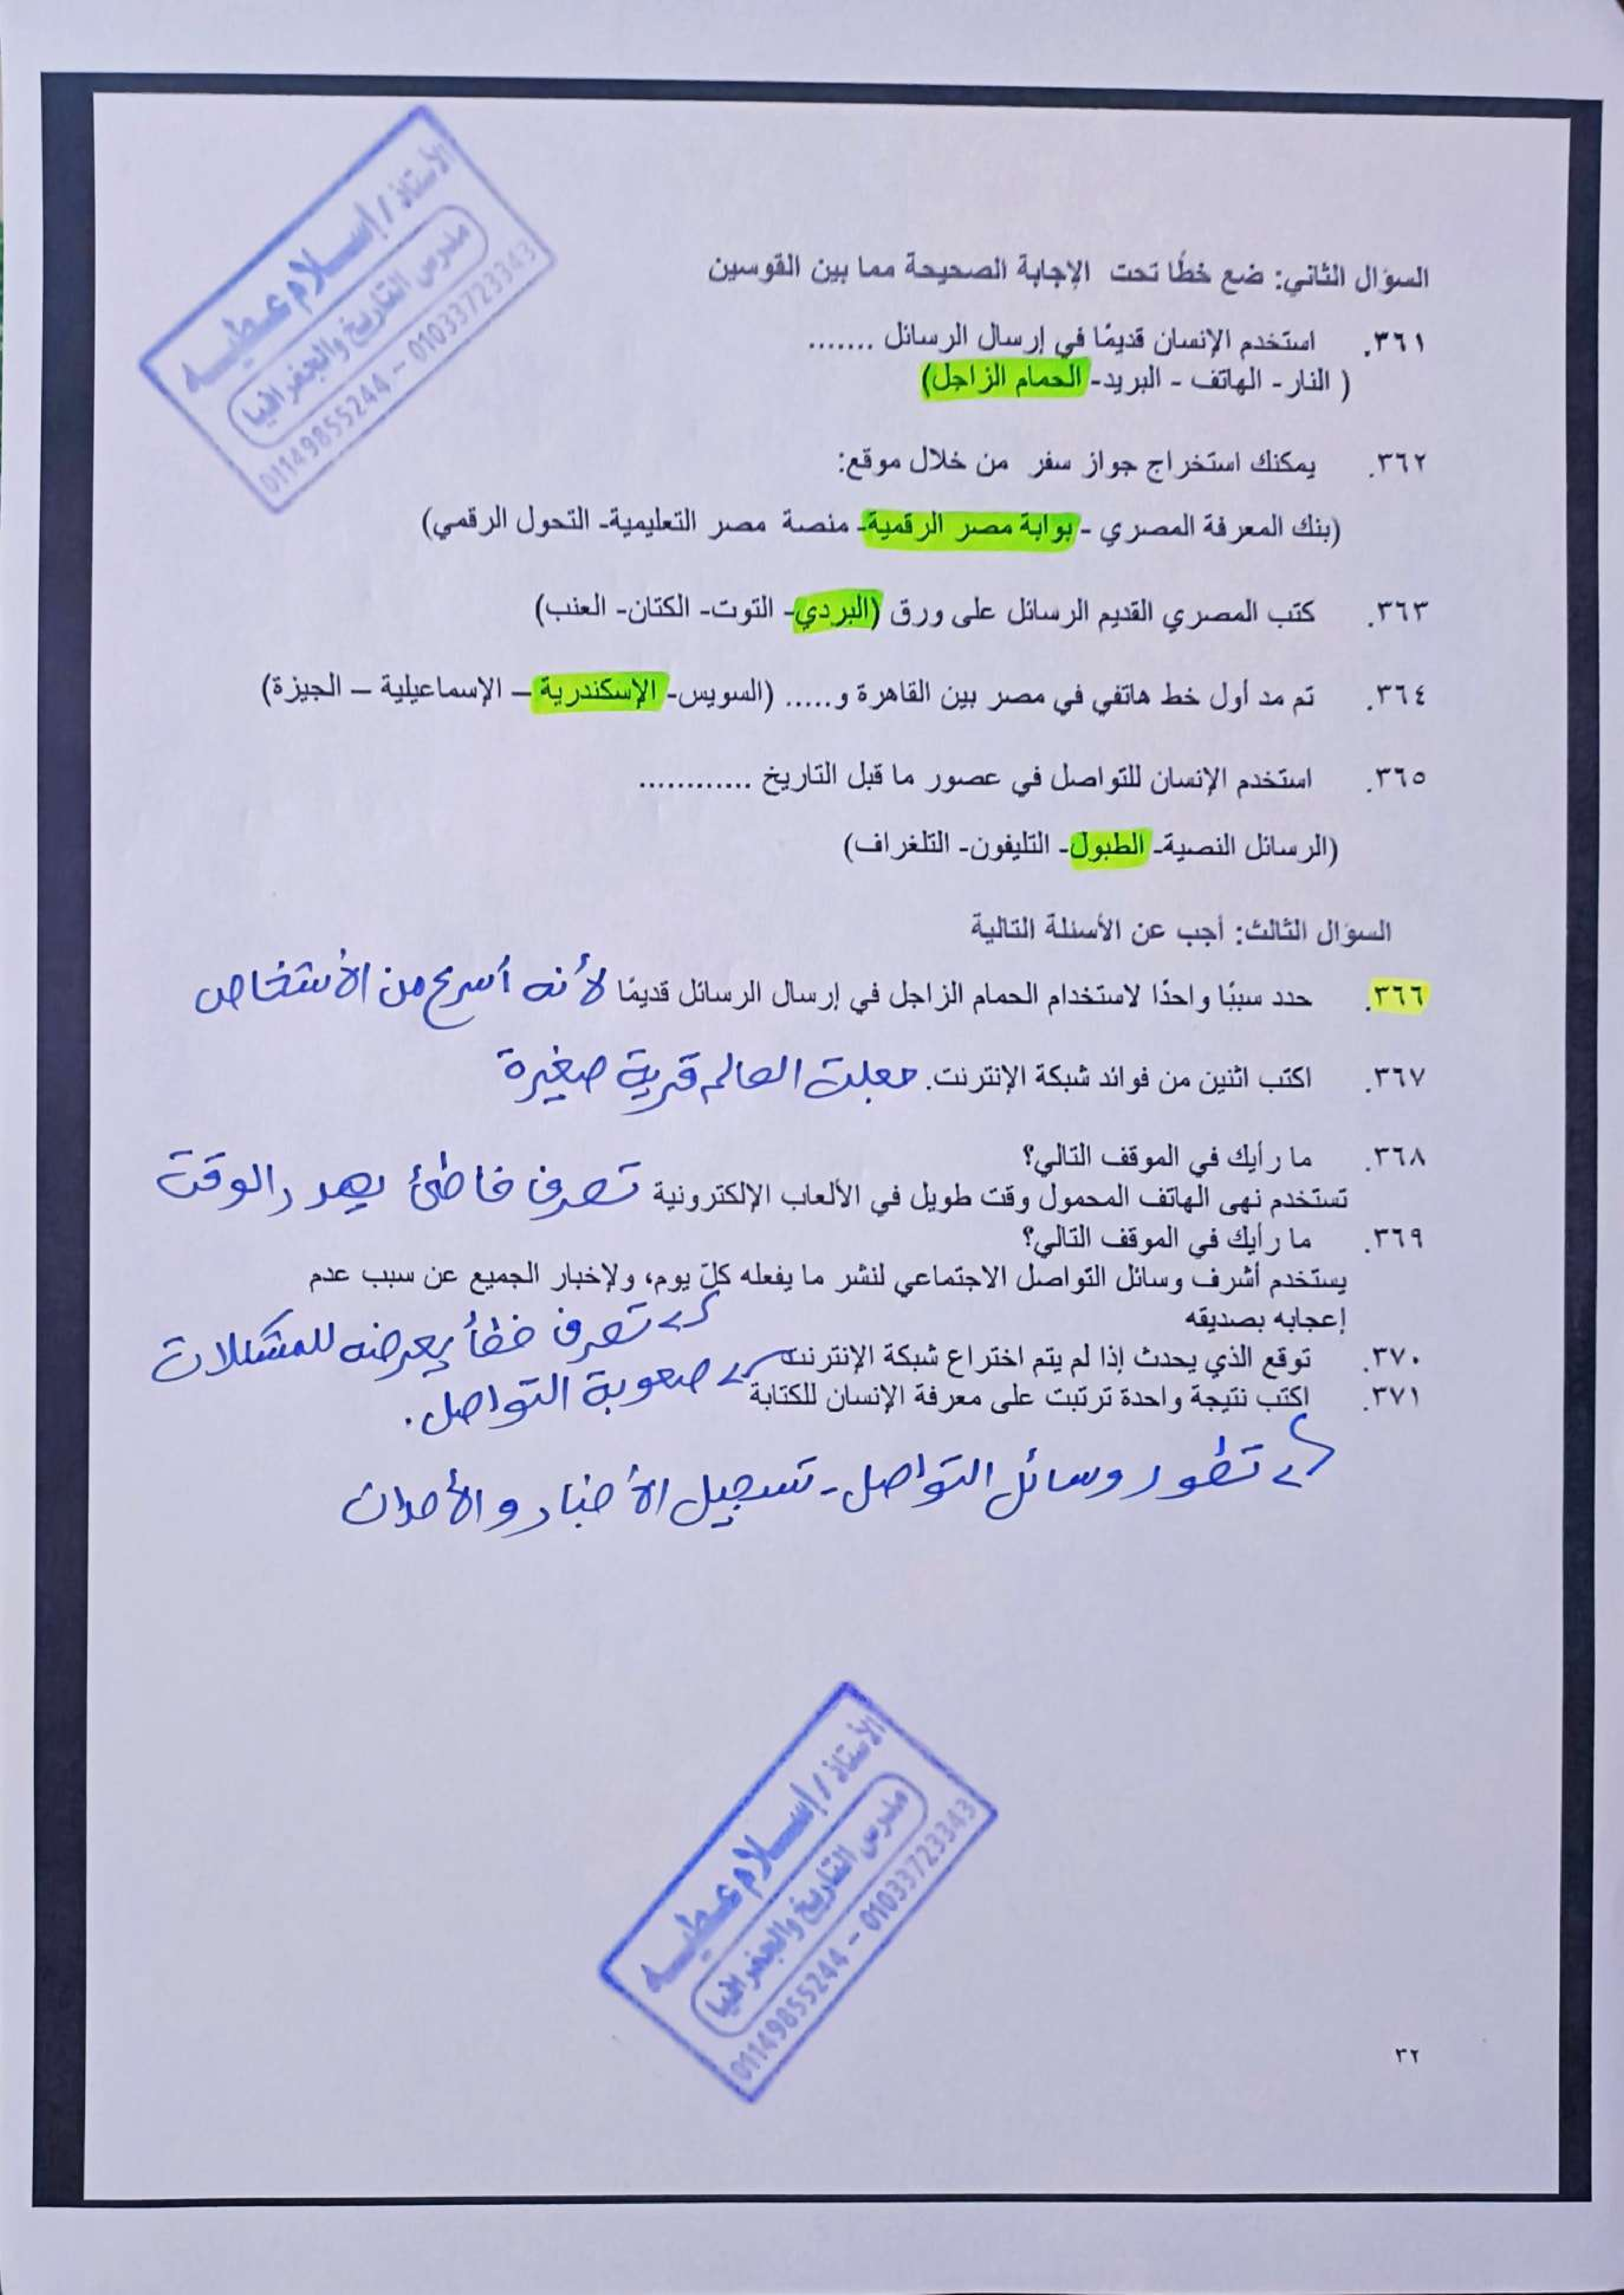 الأستاذ / إسلام عطيه
مدرس التاريخ والجغرافيا
01149855244 - 01033723343
السؤال الثاني: ضع خطًا تحت الإجابة الصحيحة مما بين القوسين
٣٦١. استخدم الإنسان قديمًا في إرسال الرسائل .......
( النار- الهاتف - البريد- الحمام الزاجل)
٣٦٢. يمكنك استخراج جواز سفر من خلال موقع:
(بنك المعرفة المصري - بوابة مصر الرقمية- منصة مصر التعليمية- التحول الرقمي)
٣٦٣. كتب المصري القديم الرسائل على ورق (البردي- التوت- الكتان- العنب)
٣٦٤. تم مد أول خط هاتفي في مصر بين القاهرة و..... (السويس- الإسكندرية – الإسماعيلية – الجيزة)
٣٦٥. استخدم الإنسان للتواصل في عصور ما قبل التاريخ ............
(الرسائل النصية- الطبول- التليفون- التلغراف)
السؤال الثالث: أجب عن الأسئلة التالية
٣٦٦. حدد سببًا واحدًا لاستخدام الحمام الزاجل في إرسال الرسائل قديمًا لأنه أسرع من الأشخاص
٣٦٧. اكتب اثنين من فوائد شبكة الإنترنت. جعلت العالم قرية صغيرة
٣٦٨. ما رأيك في الموقف التالي؟
تستخدم نهى الهاتف المحمول وقت طويل في الألعاب الإلكترونية تصرف خاطئ يهدر الوقت
٣٦٩. ما رأيك في الموقف التالي؟
يستخدم أشرف وسائل التواصل الاجتماعي لنشر ما يفعله كلّ يوم، ولإخبار الجميع عن سبب عدم
إعجابه بصديقه
تصرف خطأ يعرضه للمشكلات
٣٧٠. توقع الذي يحدث إذا لم يتم اختراع شبكة الإنترنت صعوبة التواصل.
٣٧١. اكتب نتيجة واحدة ترتبت على معرفة الإنسان للكتابة
تطور وسائل التواصل - تسجيل الأخبار والأحداث
الأستاذ / إسلام عطيه
مدرس التاريخ والجغرافيا
01149855244 - 01033723343
٣٢